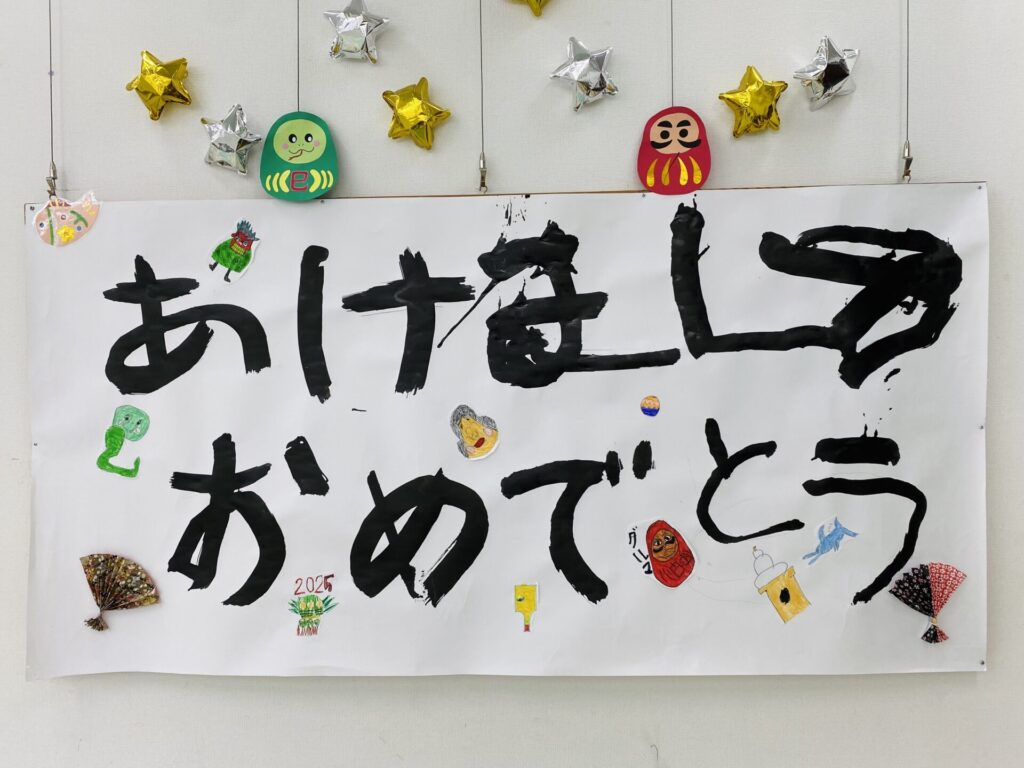 巳
あけまして
おめでとう
ダルマ
2025